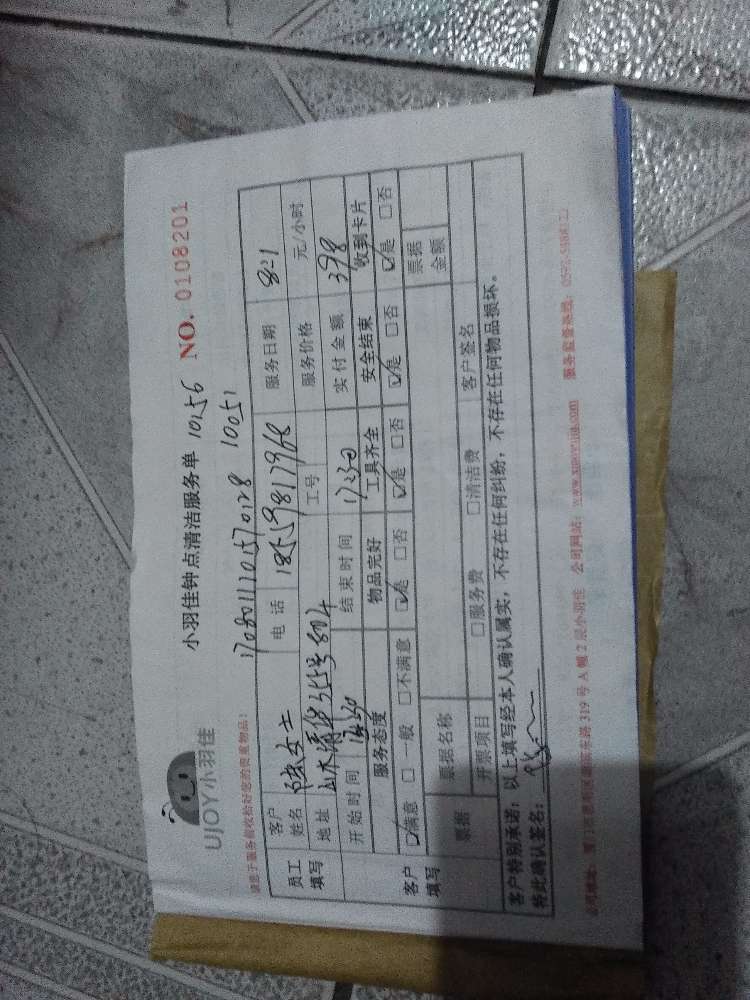 UJOY小羽佳
小羽佳钟点清洁服务单 10156 NO. 0108201
1708011101570128 10051
员工填写 客户姓名 女士 电话 18559817968 服务日期 8:1
地址 山水清华 804 工号 服务价格 元/小时
开始时间 14:30 结束时间 17:30 实付金额 398
客户填写 服务态度 物品完好 工具齐全 安全结束 收到卡片
☑满意 □一般 □不满意 ☑是 □否 ☑是 □否 ☑是 □否 ☑是 □否
票据 票据名称 票据金额
开票项目 □服务费 □清洁费 客户签名
客户特别承诺：以上填写经本人确认属实，不存在任何纠纷，不存在任何物品损坏。
特此确认签名：
公司地址： 319号A幢2层小羽佳 公司网站： 服务监督热线：